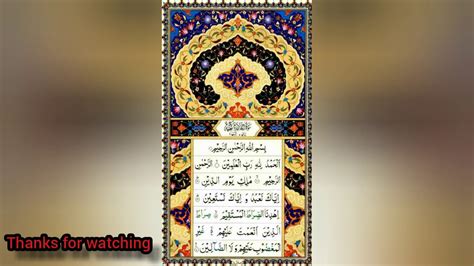 بِسْمِ اللهِ الرَّحْمٰنِ الرَّحِيْمِ
اَلْحَمْدُ لِلّٰهِ رَبِّ الْعٰلَمِيْنَ الرَّحْمٰنِ
الرَّحِيْمِ مٰلِكِ يَوْمِ الدِّيْنِ
اِيَّاكَ نَعْبُدُ وَ اِيَّاكَ نَسْتَعِيْنُ
اِهْدِنَا الصِّرَاطَ الْمُسْتَقِيْمَ صِرَاطَ
الَّذِيْنَ اَنْعَمْتَ عَلَيْهِمْ غَيْرِ
الْمَغْضُوْبِ عَلَيْهِمْ وَلَا الضَّآلِّيْنَ
Thanks for watching